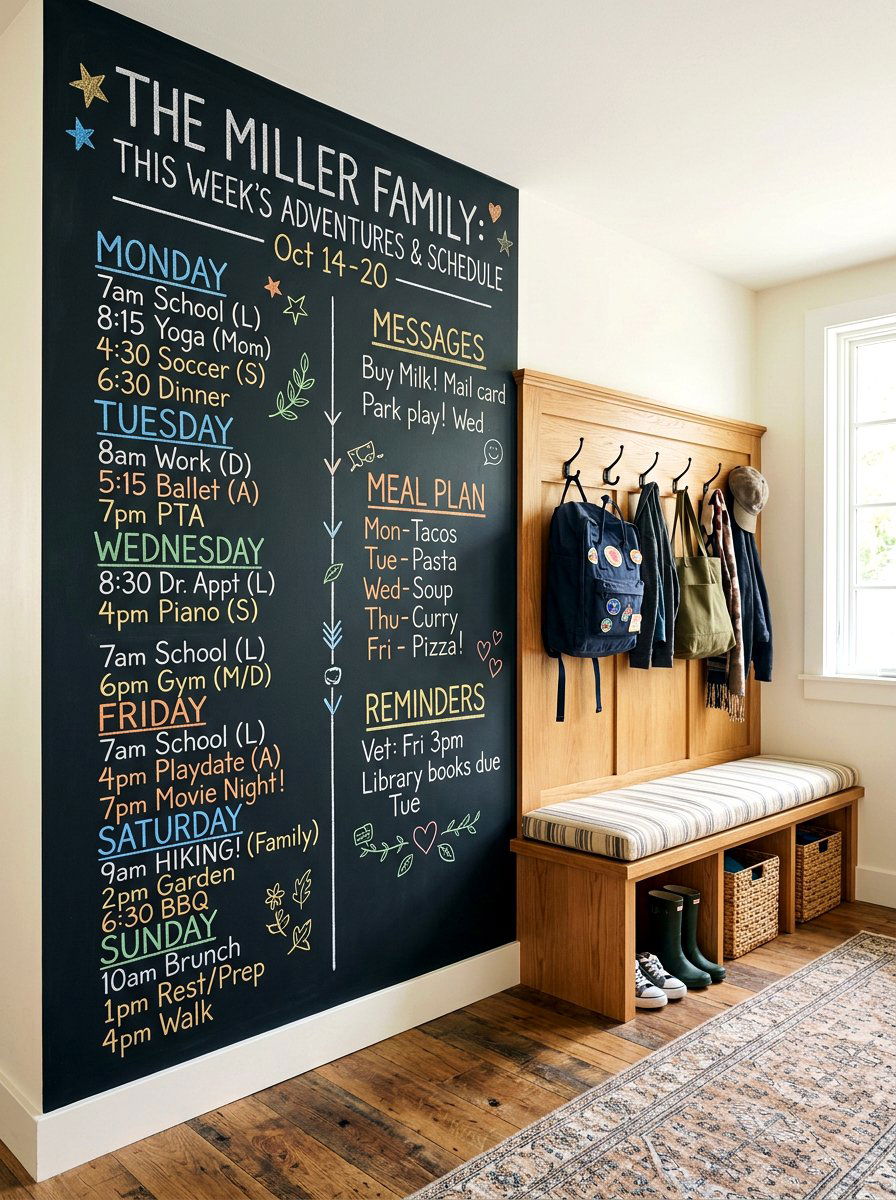 THE MILLER FAMILY:
THIS WEEK'S ADVENTURES & SCHEDULE
Oct 14-20
MONDAY
7am School (L)
8:15 Yoga (Mom)
4:30 Soccer (S)
6:30 Dinner
TUESDAY
8am Work (D)
5:15 Ballet (A)
7pm PTA
WEDNESDAY
8:30 Dr. Appt (L)
4pm Piano (S)
7am School (L)
6pm Gym (M/D)
FRIDAY
7am School (L)
4pm Playdate (A)
7pm Movie Night!
SATURDAY
9am HIKING! (Family)
2pm Garden
6:30 BBQ
SUNDAY
10am Brunch
1pm Rest/Prep
4pm Walk
MESSAGES
Buy Milk! Mail card
Park play! Wed
MEAL PLAN
Mon-Tacos
Tue-Pasta
Wed-Soup
Thu-Curry
Fri - Pizza!
REMINDERS
Vet: Fri 3pm
Library books due
Tue